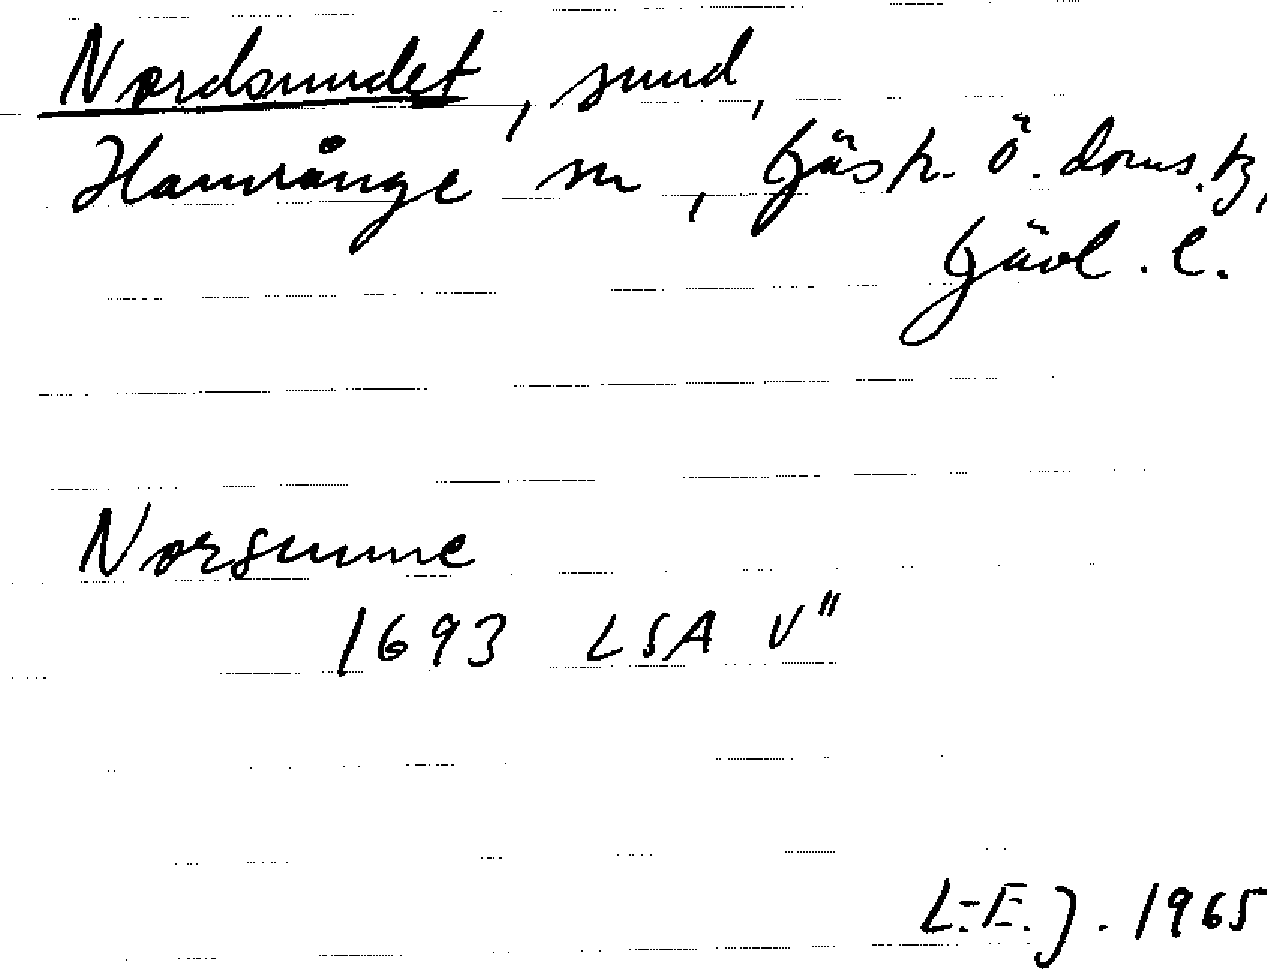 Nordsundet, sund,
Hamrånge sn, Gästr. Ö. doms. tg,
Gävl. l.
Norsunne
1693 LSA V"
L.-E. J. 1965